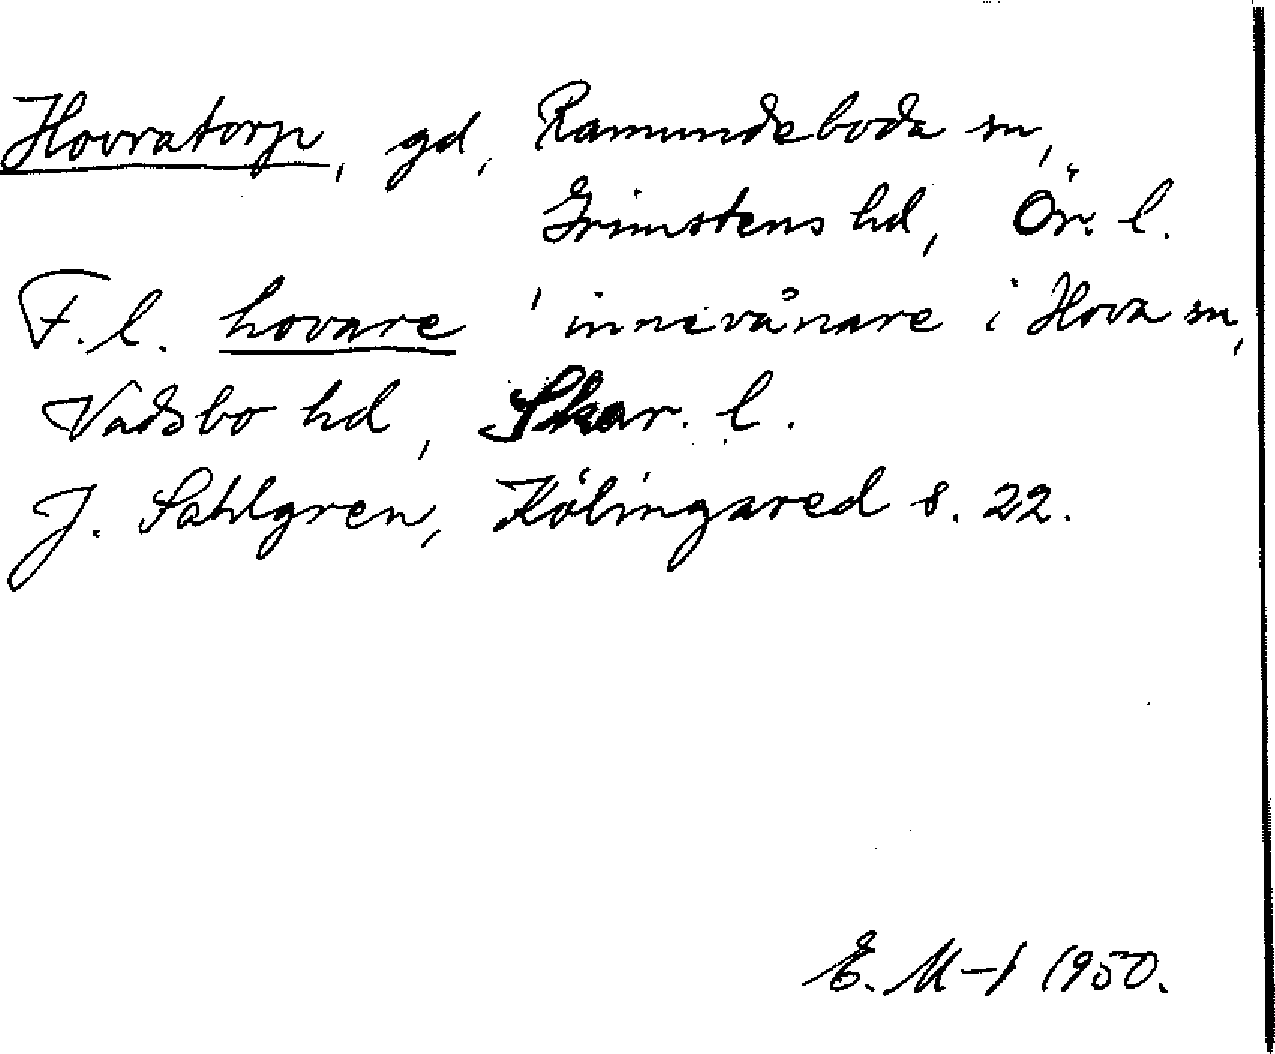 Hovratorp, gd, Ramundeboda sn,
Grimstens hd, Ör. l.
F. l. hovare 'innevånare i Hova sn,
Vadsbo hd, Skar. l.
J. Sahlgren, Kölingared s. 22.
E. M-l 1950.